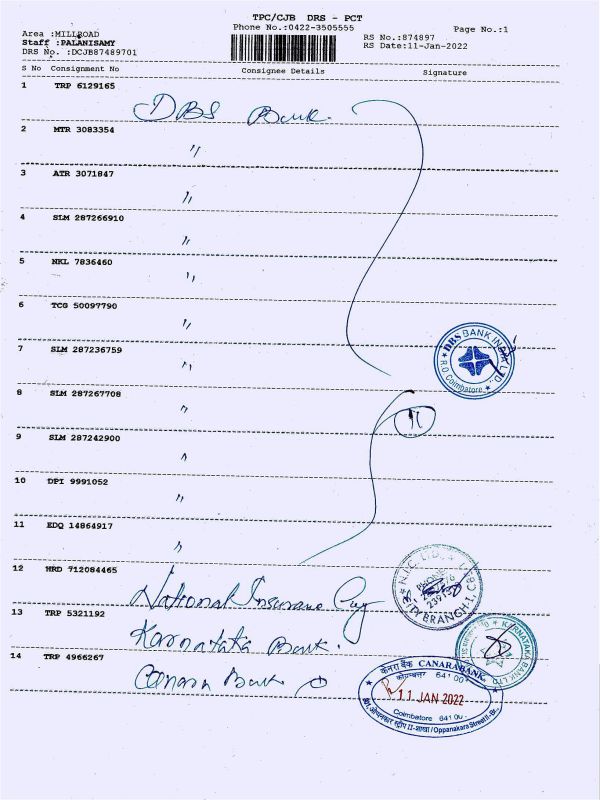 TPC/CJB DRS - PCT
Phone No.:0422-3505555
Page No.:1
Area :MILLROAD
Staff :PALANISAMY
DRS No. :DCJB87489701
RS No.:874897
RS Date:11-Jan-2022
S No Consignment No Consignee Details Signature
1 TRP 6129165
DBS Bank.
2 MTR 3083354
"
3 ATR 3071847
"
4 SLM 287266910
"
5 NKL 7836460
"
6 TCG 50097790
"
7 SLM 287236759
"
DBS BANK INDIA LTD.
R.O Coimbatore
8 SLM 287267708
"
11
9 SLM 287242900
"
10 DPI 9991052
"
11 EDQ 14864917
"
12 HRD 712084465
National Insurance Coy
13 TRP 5321192
Karnataka Bank.
KARNATAKA BANK LTD
14 TRP 4966267
Canara Bank
केनरा बैंक CANARA BANK
641 00
11 JAN 2022
Coimbatore 641 00
Oppanakara Street II-Br.